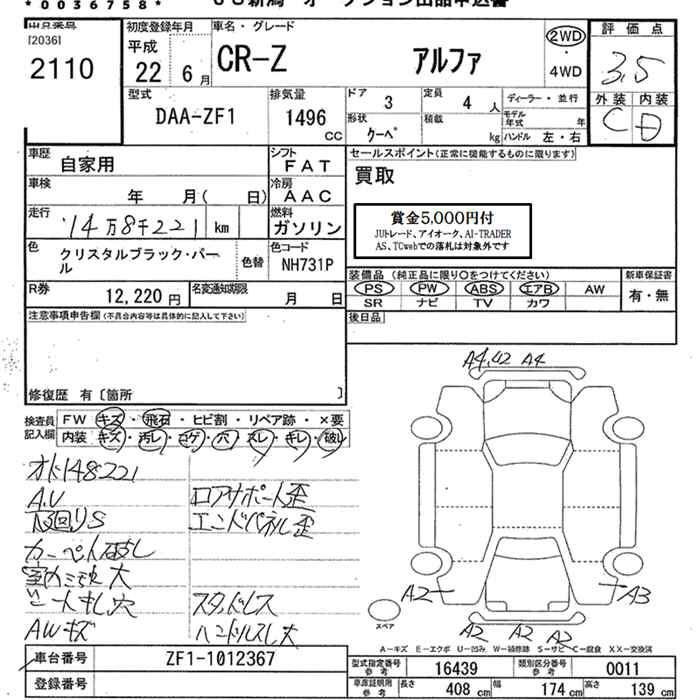 *0036758*
出品番号
120361
2110
初度登録年月
平成
22年6月
車名・グレード
CR-Z アルファ
2WD
・
4WD
評価点
3.5
外装 内装
C D
型式
DAA-ZF1
排気量
1496
CC
ドア
3
定員
4人
形状
クーペ
積載
kg
ディーラー・並行
モデル年式 年
ハンドル 左・右
車歴
自家用
シフト
FAT
車検
年 月( 日)
冷房
AAC
走行
'14万8千221 km
燃料
ガソリン
色
クリスタルブラック・パール
色替
色コード
NH731P
R券
12,220円
名変通知期限
月 日
セールスポイント(正常に機能するものに限ります)
買取
賞金5,000円付
JUトレード、アイオーク、AI-TRADER
AS、TCwebでの落札は対象外です
装備品(純正品に限り○をつけてください)
PS PW ABS エアB AW
SR ナビ TV カワ
新車保証書
有・無
後日品
注意事項申告欄(不具合内容等は具体的に記入して下さい)
修復歴 有〔箇所 〕
検査員
記入欄
FW キズ・飛石・ヒビ割・リペア跡・×要
内装 キズ・汚レ・コゲ・穴・スレ・キレ・破レ
オド148221
A.V
下回りS
カーペット破レ
シートキレ穴
AWキズ
ロアサポート歪
エンドパネル歪
スタッドレス
ハンドルスレ大
A4,U2 A4
A2
A3
A2 A2 A2
スペア
A-キズ E-エクボ U-凹み W-補修跡 S-サビ C-腐食 XX-交換済
車台番号
ZF1-1012367
登録番号
型式指定番号
参考
16439
類別区分番号
参考
0011
車庫証明用
参考
長さ 408cm
幅 174cm
高さ 139cm